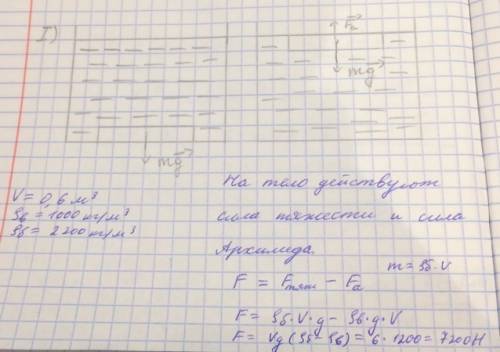 I)
Fa
mg
mg
V = 0,6 м³
ρв = 1000 кг/м³
ρб = 2200 кг/м³
На тело действуют
сила тяжести и сила
Архимеда.
m = ρб · V
F = Fтяж − Fa
F = ρб · V · g − ρв · g · V
F = Vg (ρб − ρв) = 6 · 1200 = 7200Н